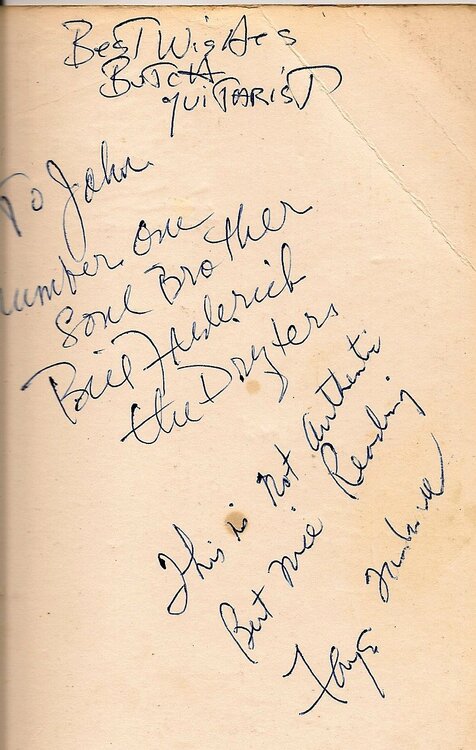 Best Wishes
Butch
guitarist
To John
number one
Soul Brother
Bill Frederick
the Drifters
This is Not Authentic
But Nice Reading
Faye Treadwell